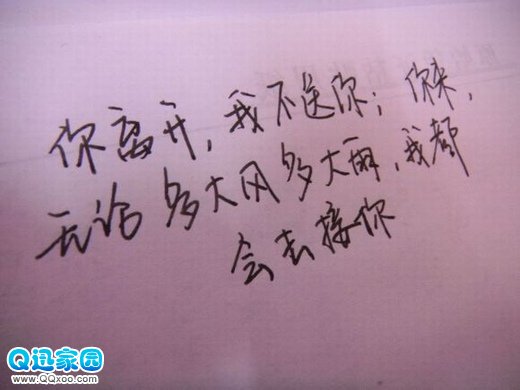 你离开,我不送你;你来,
无论多大风多大雨,我都
会去接你
Q迅家园
www.QQxoo.com